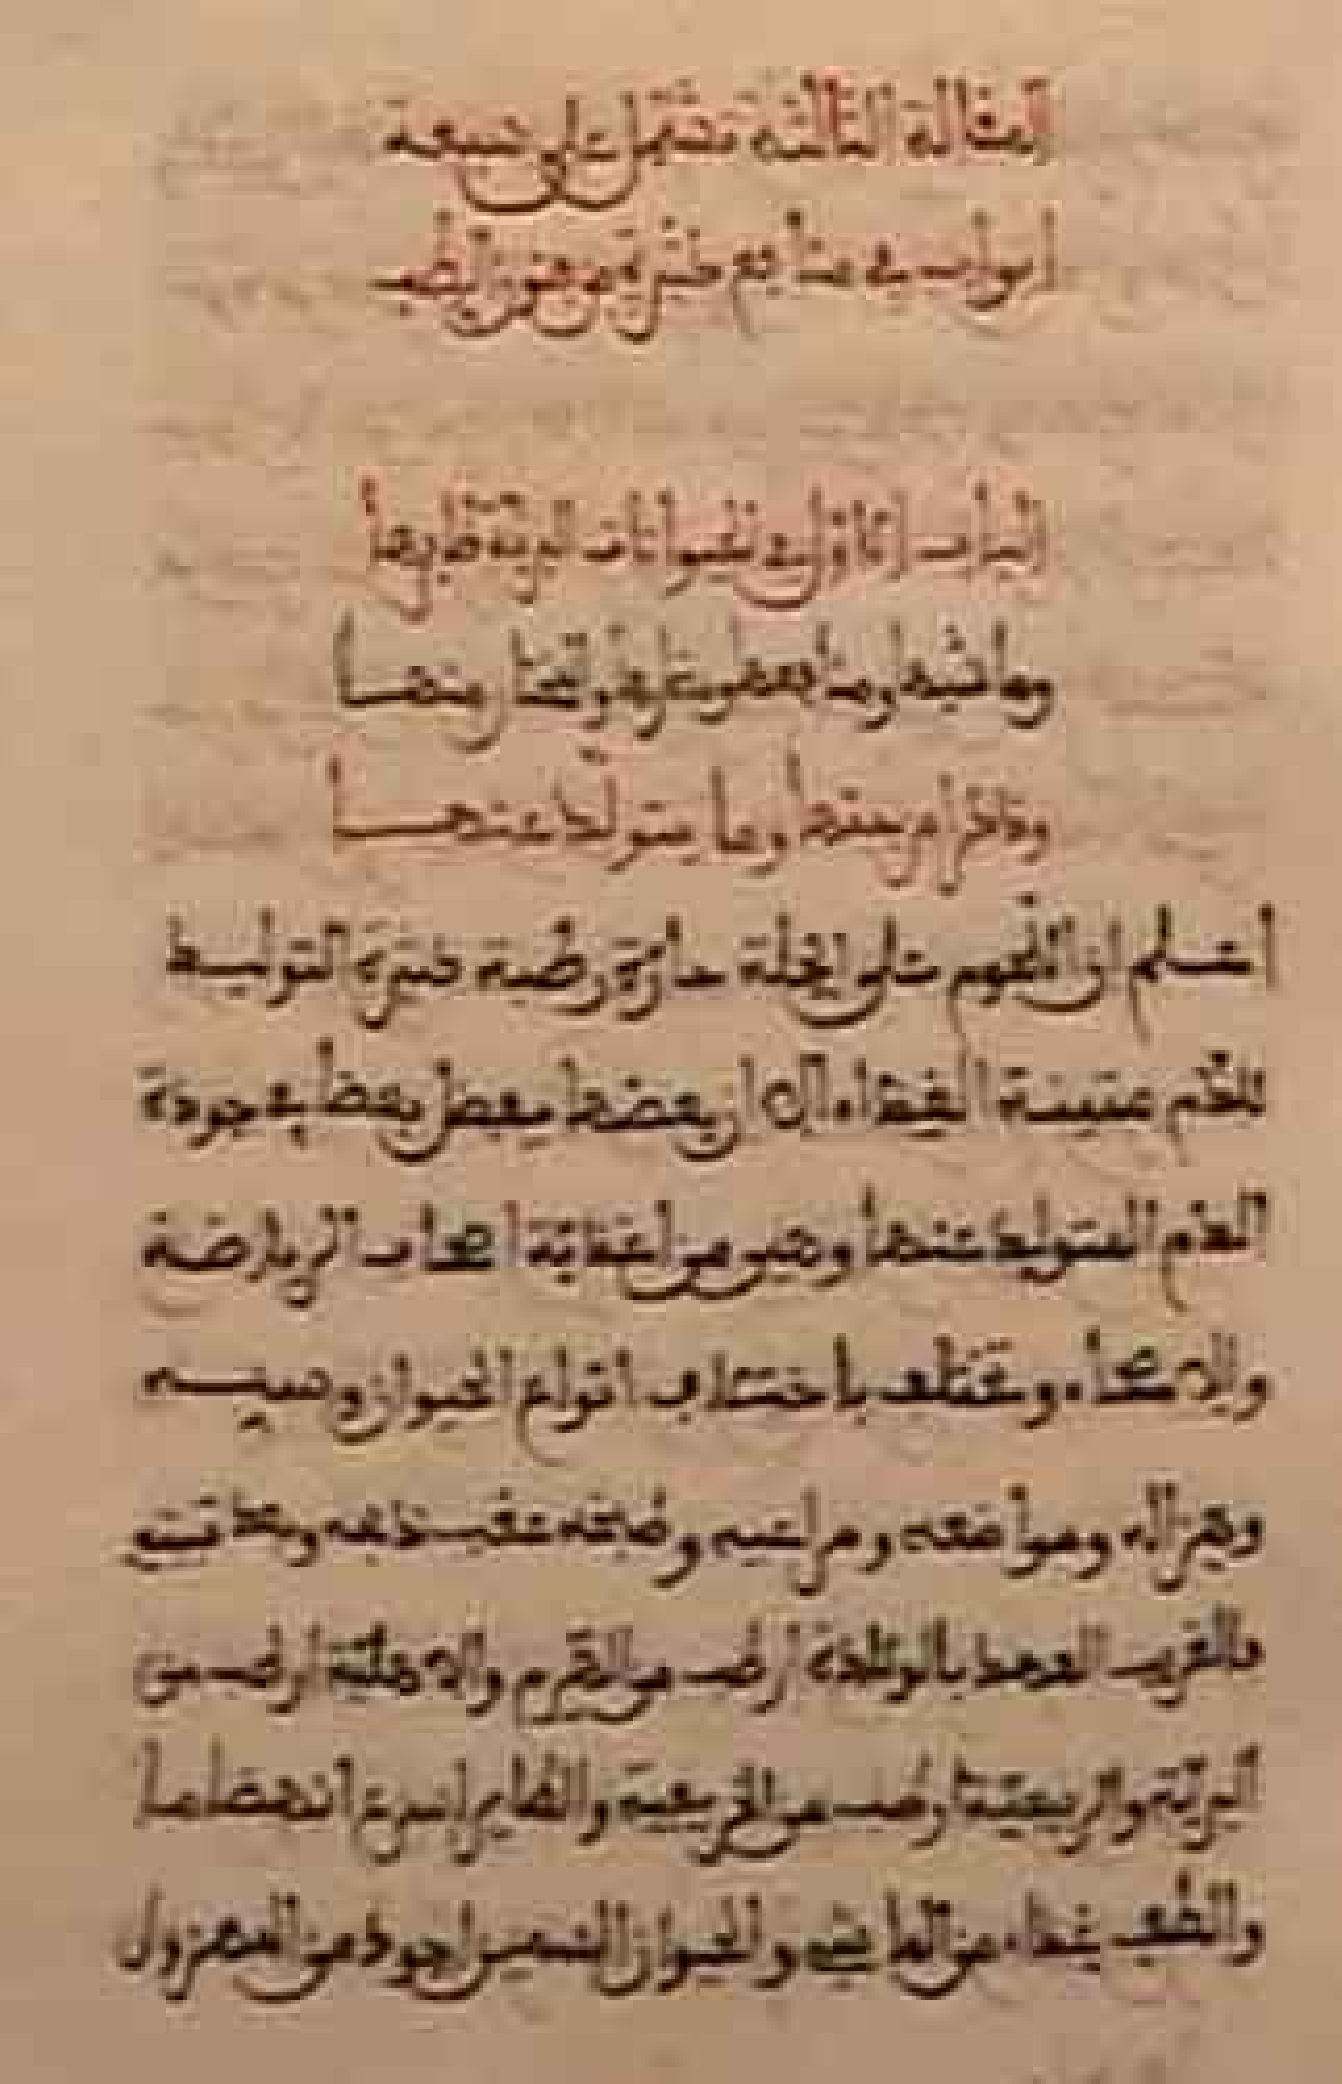 المقالة الثالثة تشتمل على سبعة
أبواب في منافع كثيرة من فنون الطب
الباب الأول في الحيوانات البرية طايرها
وماشيها ومنافعها ومضارها والمختار منها
وذكر أمزجتها وما يتولد عنها
اعلم ان اللحوم على الجملة حارة رطبة كثيرة التوليد
للدم متينة الغذاء الا ان بعضها يفضل بعضا في جودة
الدم المتولد عنها وهي من أغذية أصحاب الرياضة
والاصحاء وتختلف باختلاف أنواع الحيوان وسنه
وهزاله ومواضعه ومراعيه وصنعته عقب ذبحه
فالقريب العهد بالولادة أرطب من الهرم والأهلية أرطب من
البرية والربيعية أرطب من الخريفية والطاير أسرع انهضاما
وألطف غذاء من الماشي والحيوان السمين أجود من المهزول